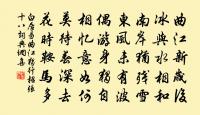 曲江新歲後
冰與水相和
南岸猶殘雪
東風未有波
偶游身自在
相憶意如何
莫待春深去
花時鞍馬多
白居易曲江獨行招張
十八詞典網集